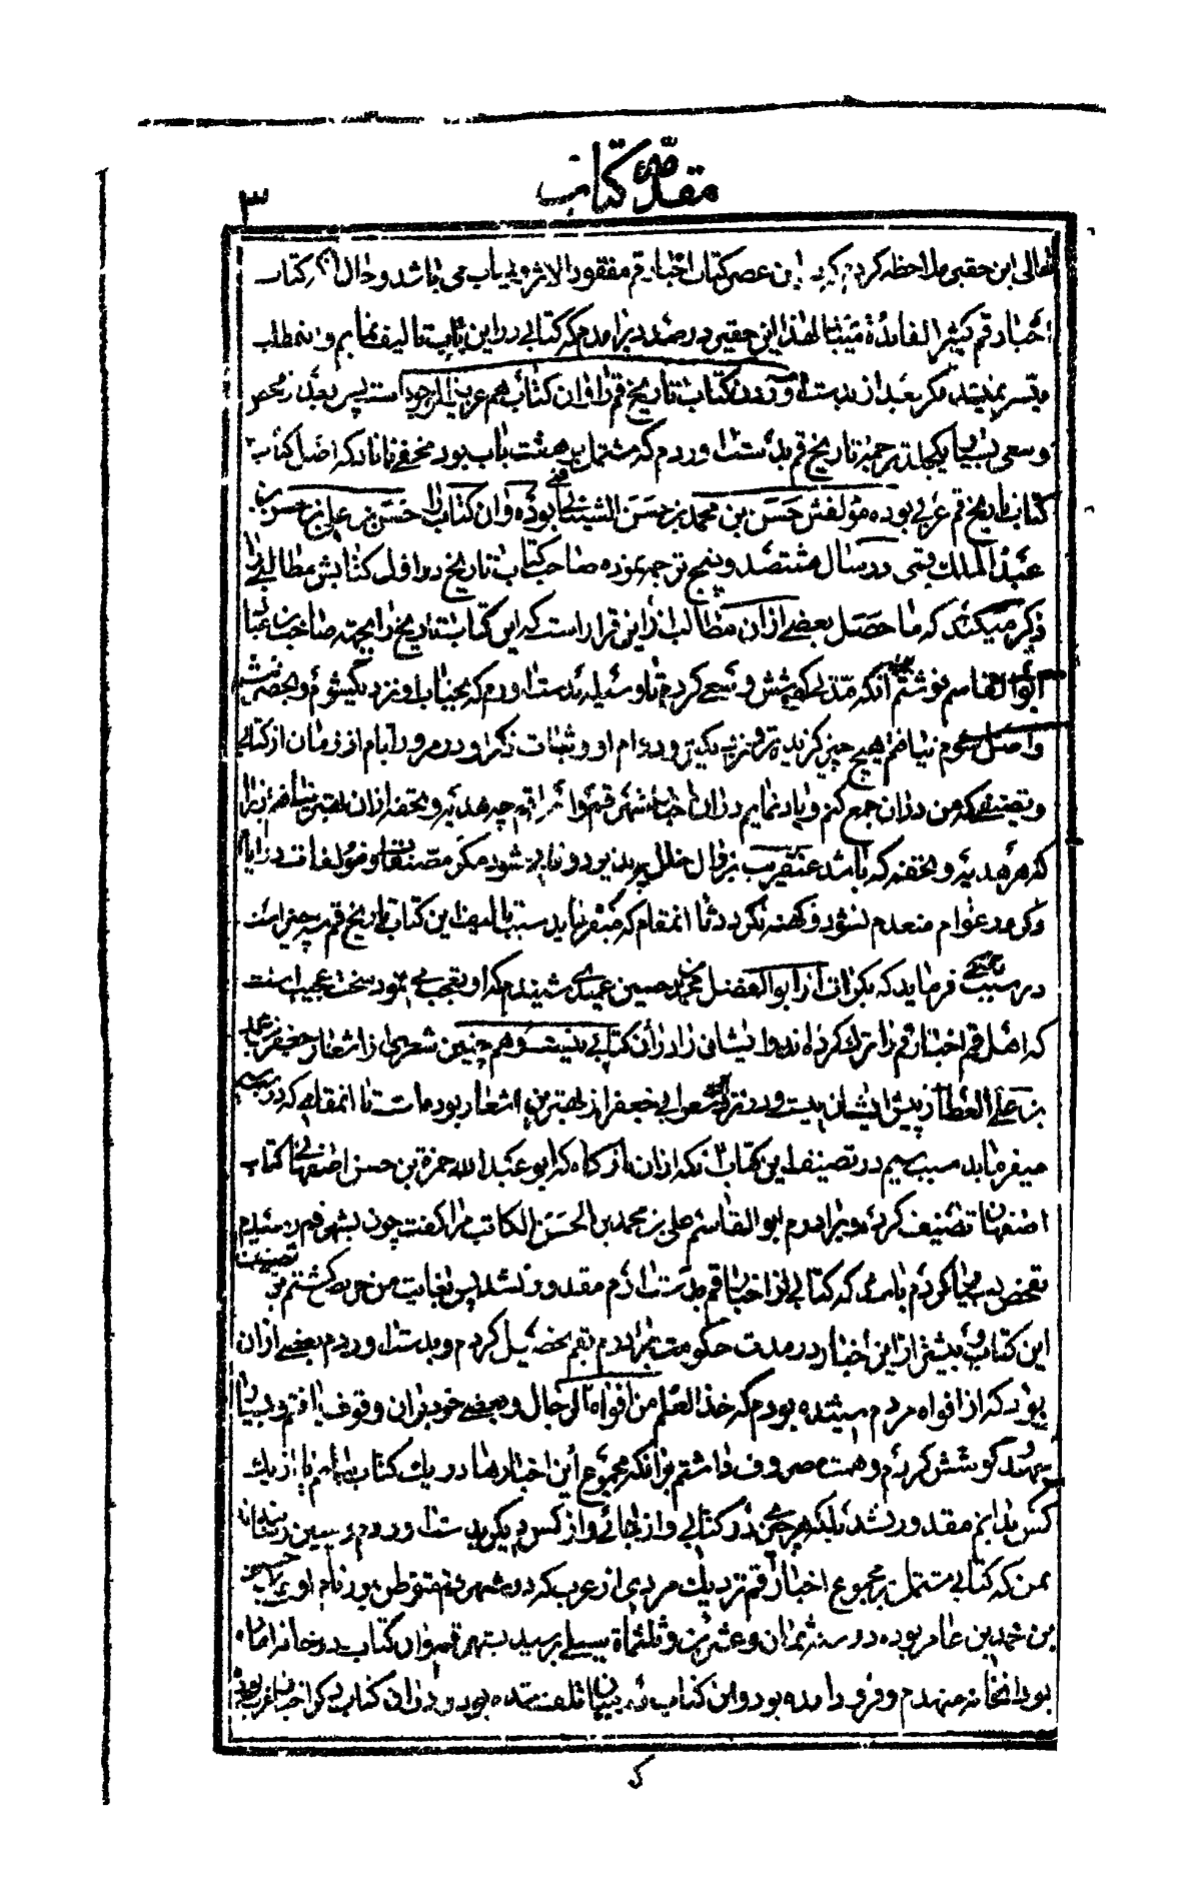 مقدمه کتاب
۳
تعالی این حقیر ملاحظه کردم که در این عصر کتاب اخبار قم مفقود الاثر و نایاب می باشد و حال آنکه کتاب
اخبار قم کثیر الفائدة میباشد لهذا این حقیر در صدد برآمدم که کتابی در این باب تالیف نمایم و این مطلب
میسر نمیشد مگر بعد از بدست آوردن کتاب تاریخ قم و آن کتاب هم عزیز الوجود است پس بعد از تفحص
و سعی بسیار یکجلد ترجمه تاریخ قم بدست آوردم که مشتمل بر هشت باب بود مخفی نماناد که اصل کتاب
کتاب تاریخ قم عربی بوده مؤلفش حسن بن محمد بن حسن الشیبانی قمی بوده و آن کتاب را حسن بن علی بن حسن بن
عبد الملک قمی در سال هشتصد و پنج ترجمه نموده صاحب کتاب تاریخ در اول کتابش مطالبی را
ذکر میکند که ما حصل بعضی از آن مطالب از این قرار است که این کتاب تاریخ را بجهة صاحب بن عباد
ابو القاسم نوشتم آنکه مدتی کوشش و سعی کردم تا وسیله بدست آورم که بجناب او نزدیک شوم و بحضرتش
واصل شوم نیافتم هیچ چیز گزیده تر و نزدیکتر و دوام او و ثبات ذکر او در مرور ایام و زمان از کتابی
و تصنیفی که من در آن جمع کنم و یاد نمایم در آن اخبار شهر قم و اهل قم چه هدیه و تحفه از آن بهتر نیافتم زیرا
که هر هدیه و تحفه که باشد عنقریب بزوال خلل پذیرد و نابود شود مگر مصنفات و مؤلفات در ایام
و کرور عوام منعدم نشود و کهنه نگردد تا آنمقام که میفرماید سبب تالیف این کتاب تاریخ قم سه چیز است
در سبب فرماید که بکرات از ابو الفضل محمد بن حسین عمید شنیدم که او تعجب می نمود سخت عجیب است
که اهل قم اخبار قم را ترک کرده اند و ایشان را در آن کتابی نیست و هم چنین شعری از اشعار جعفر بن محمد
بن علی العطار پیش ایشان نیست و در نزد شعر ابی جعفر از بهترین اشعار بوده است تا آنمقام که در سبب سیم
میفرماید سبب سیم در تصنیف این کتاب آنکه از آن گاه که ابو عبد الله حمزة بن حسن اصفهانی کتاب
اصفهان تصنیف کرد و برادرم ابو القاسم علی بن محمد بن الحسن الکاتب مرا گفت چون بشهر قم رسیدم
تفحص بسیار کردم بامید که کتابی از اخبار قم بدست آرم مقدور نشد پس بغایت من حریص گشتم بر تصنیف
این کتاب و بیشتر از این اخبار در مدت حکومت برادرم بقم تحصیل کردم و بدست آوردم بعضی از آن
بود که از افواه مردم شنیده بودم که خذ العلم من افواه الرجال و بعضی خود بر آن وقوف یافتم و بسیار
جهد و کوشش کردم و همت مصروف داشتم بر آنکه مجموع این اخبارها در یک کتاب بیابم یا از یک
کس بیابم مقدور نشد بلکه هر چیزی در کتابی و از جائی و از کس دیگر بدست آوردم
بمن که کتابی مشتمل بر مجموع اخبار قم نزدیک مردی از عرب که در شهر قم متوطن بود نام او علی بن حسین
بن محمد بن عامر بوده در سنه ثمان و عشرین و ثلثمأة سیلی برسید بشهر قم و آن کتاب در خانه افتاده
بود آنخانه منهدم و فرود آمده بود و این کتاب در میان تلف شده بود و در آن کتاب ذکر اخبار عرب بوده
ک